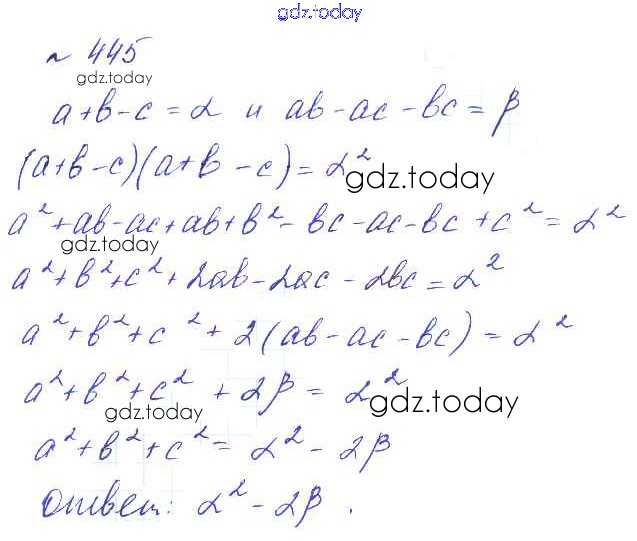 gdz.today
№ 445
gdz.today
a+b-c = α и ab-ac-bc = β
(a+b-c)(a+b-c) = α²
gdz.today
a²+ab-ac+ab+b²-bc-ac-bc+c² = α²
gdz.today
a²+b²+c²+2ab-2ac-2bc = α²
a²+b²+c²+2(ab-ac-bc) = α²
gdz.today
a²+b²+c²+2β = α²
gdz.today
gdz.today
a²+b²+c² = α²-2β
Ответ: α²-2β.